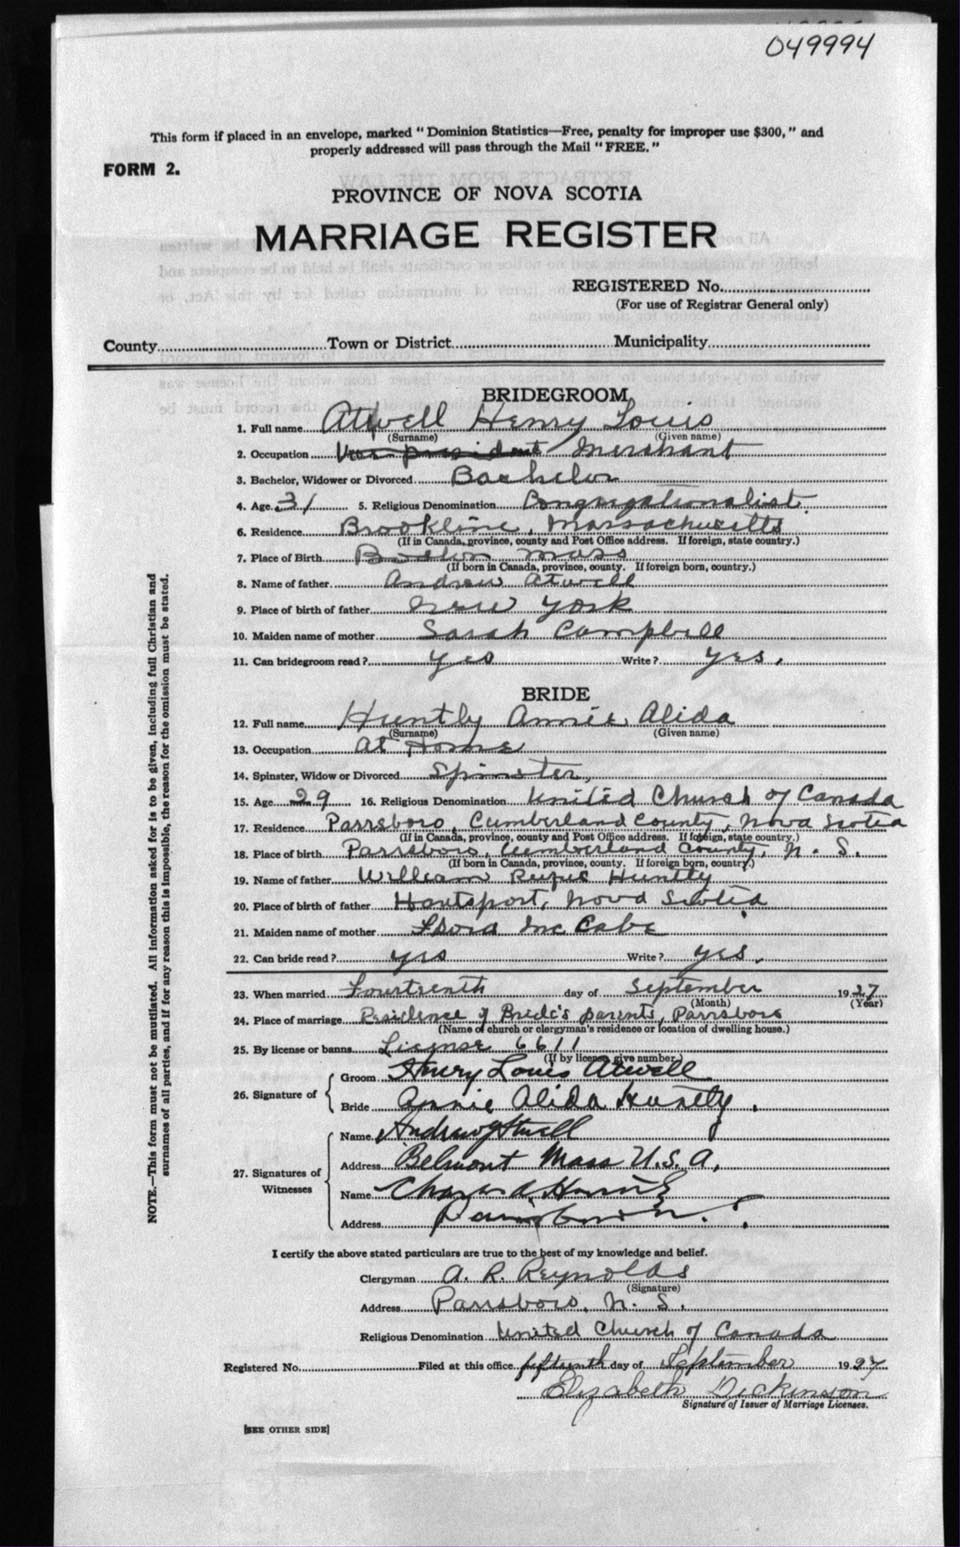 049994
This form if placed in an envelope, marked "Dominion Statistics—Free, penalty for improper use $300," and
properly addressed will pass through the Mail "FREE."
FORM 2.
PROVINCE OF NOVA SCOTIA
MARRIAGE REGISTER
REGISTERED No.
(For use of Registrar General only)
County Town or District Municipality
BRIDEGROOM
1. Full name Atwell Henry Louis
(Surname) (Given name)
2. Occupation Vice president Merchant
3. Bachelor, Widower or Divorced Bachelor
4. Age 31 5. Religious Denomination Congregationalist
6. Residence Brookline, Massachusetts
(If in Canada, province, county and Post Office address. If foreign, state country.)
7. Place of Birth Boston Mass
(If born in Canada, province, county. If foreign born, country.)
8. Name of father Andrew Atwell
9. Place of birth of father New York
10. Maiden name of mother Sarah Campbell
11. Can bridegroom read? yes Write? yes.
BRIDE
12. Full name Huntly Annie Alida
(Surname) (Given name)
13. Occupation At Home
14. Spinster, Widow or Divorced Spinster,
15. Age 29 16. Religious Denomination United Church of Canada
17. Residence Parrsboro, Cumberland County, Nova Scotia
(If in Canada, province, county and Post Office address. If foreign, state country.)
18. Place of birth Parrsboro, Cumberland County, N. S.
(If born in Canada, province, county. If foreign born, country.)
19. Name of father William Rufus Huntly
20. Place of birth of father Hantsport, Nova Scotia
21. Maiden name of mother Flora McCabe
22. Can bride read? yes Write? yes.
23. When married Fourteenth day of September 1927
(Month) (Year)
24. Place of marriage Residence of Bride's parents, Parrsboro
(Name of church or clergyman's residence or location of dwelling house.)
25. By license or banns License 6611
(If by license give number.)
26. Signature of
Groom Henry Louis Atwell
Bride Annie Alida Huntly.
27. Signatures of Witnesses
Name Andrew J Atwell
Address Belmont Mass U.S.A.
Name Charles A.
Address Parrsboro N.S.
I certify the above stated particulars are true to the best of my knowledge and belief.
Clergyman A. R. Reynolds
(Signature)
Address Parrsboro, N. S.
Religious Denomination United Church of Canada
Registered No. Filed at this office fifteenth day of September 1927
Elizabeth Dickinson
Signature of Issuer of Marriage Licenses.
[SEE OTHER SIDE]
NOTE.—This form must not be mutilated. All information asked for is to be given, including full Christian and
surnames of all parties, and if for any reason this is impossible, the reason for the omission must be stated.